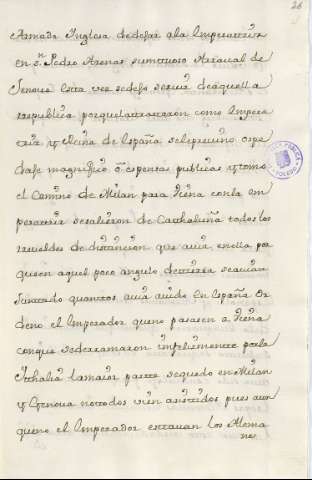 26
Armada Inglesa dedesar ala Emperatriz
en Sn. Pedro Arenas sumtuoso Arraual de
Genoua esta vez sedejo seruir deaquella
republica porquelatrataron como Empera
triz, y Reina de España seleprevino ospe
daje magnifico â espensas publicas y tomo
el Camino de Milan para Viena conla em
peratriz sesalieron de Cathaluña todos los
reueldes de distincion que auia enella por
queen aquel poco angulo detierra seauian
Juntado quantos auia auido en España or
deno el Emperador queno pasasen a Viena
conque sederramaron infelizmente porla
Ithalia lamaior parte sequedo en Milan
y Genoua notodos vien asistidos pues aun
queno el Emperador estauan los Alema
ne
TOLEDO